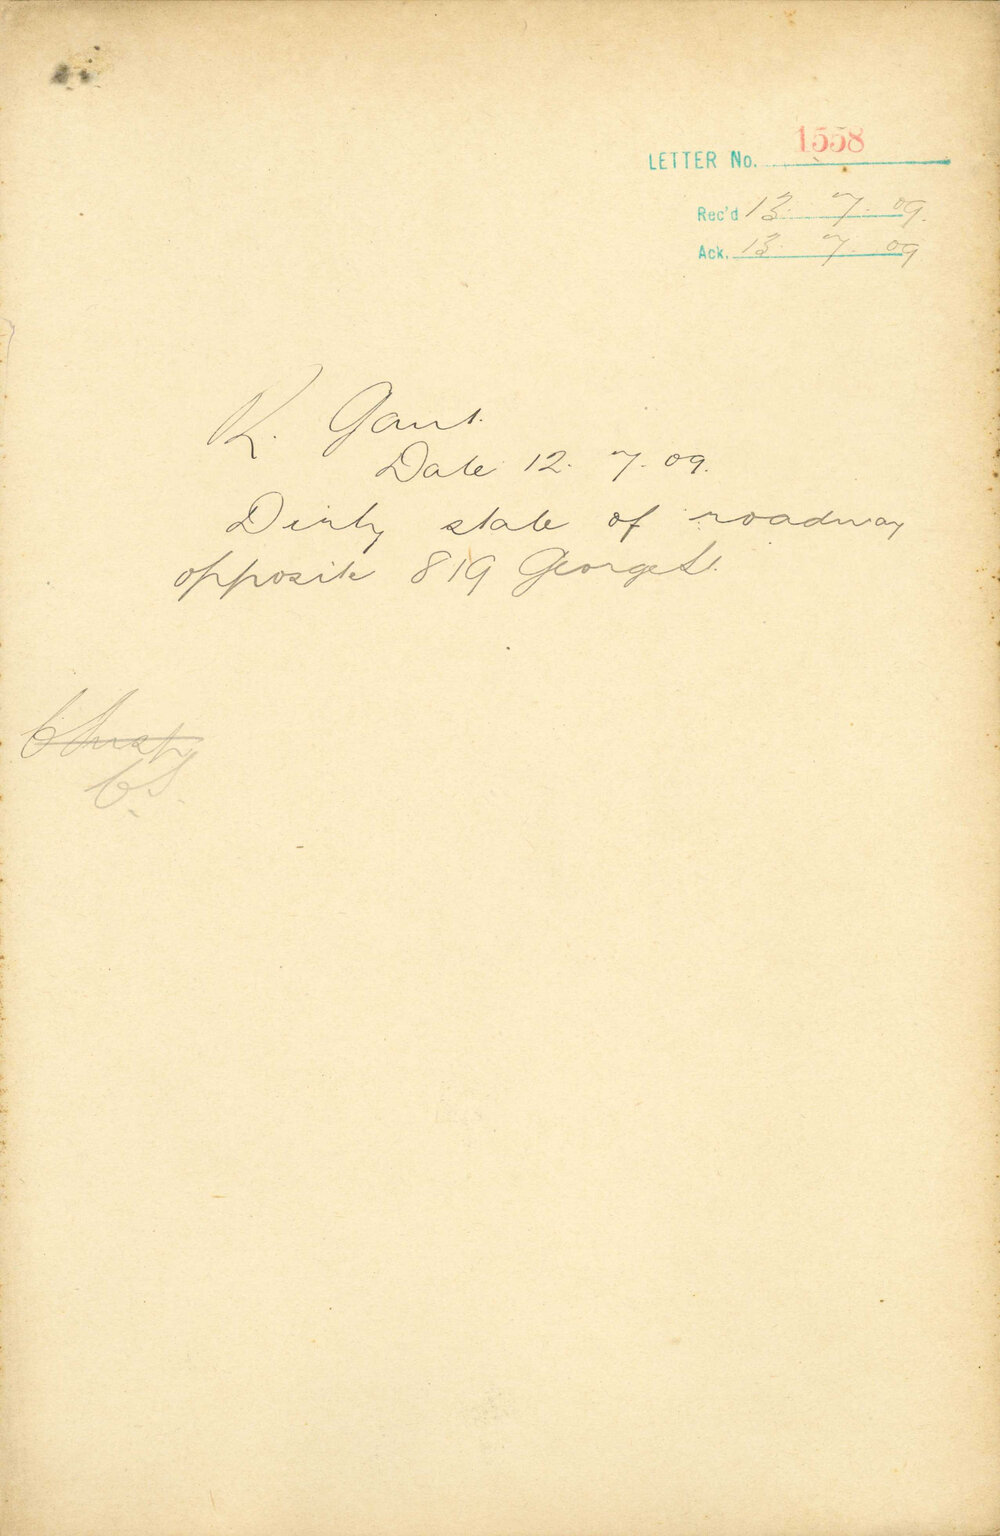 1558
LETTER No.
Rec'd 13. 7. 09.
Ack. 13. 7. 09
K. Gant.
Date 12. 7. 09.
Dirty state of roadway
opposite 819 George St.
C.S.